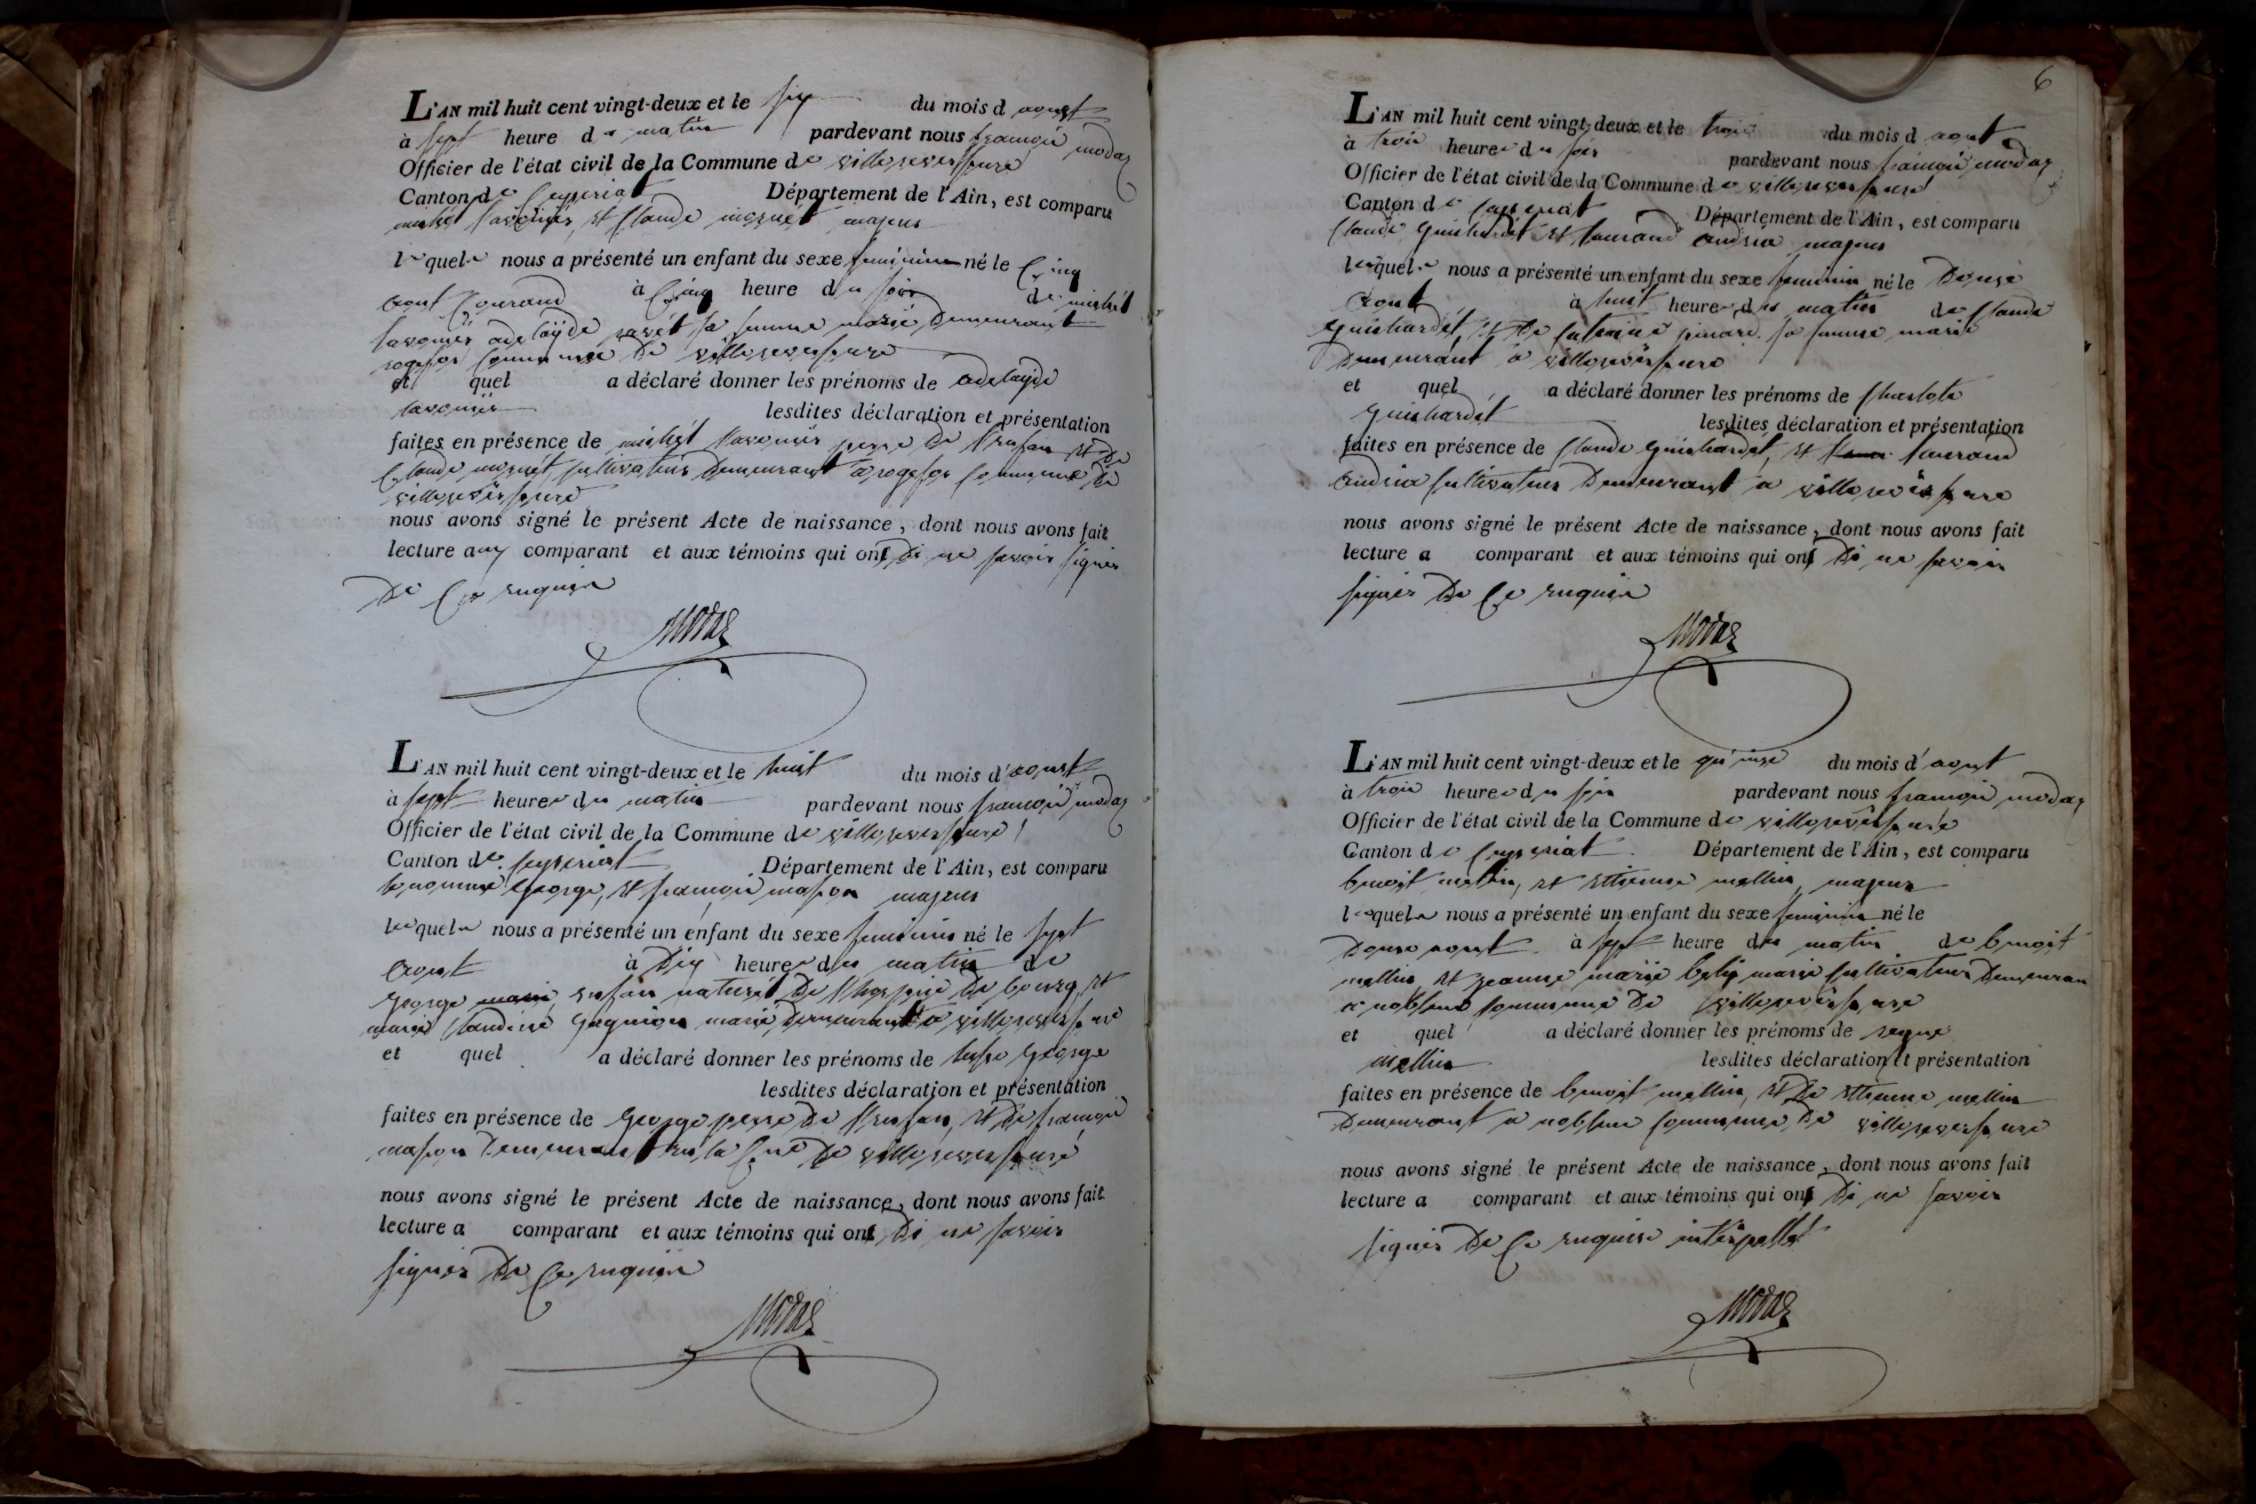 L'AN mil huit cent vingt-deux et le six du mois d aoust
à sept heure du matin pardevant nous françois modas
Officier de l'état civil de la Commune de villereversure
Canton de Ceyseriat Département de l'Ain, est comparu
michel savourés et Claude majeur
lequel nous a présenté un enfant du sexe feminin né le Cinq
aout Courand à Cinq heure du soir de michel
adelayde sa femme marié Demeurant
rogefor Commune De villereversure
et quel a déclaré donner les prénoms de adelayde
lesdites déclaration et présentation
faites en présence de michel perre De l'enfan et De
Claude cultivateur Demeurant a rogefor Commune De
villereversure
nous avons signé le présent Acte de naissance, dont nous avons fait
lecture aux comparant et aux témoins qui ont Di ne savoir signer
De Ce requise
Modas
L'AN mil huit cent vingt-deux et le huit du mois d'aoust
à sept heure du matin pardevant nous françois modas
Officier de l'état civil de la Commune de villereversure
Canton de Ceyseriat Département de l'Ain, est comparu
George, et françois majeur
lequel nous a présenté un enfant du sexe feminin né le sept
aout à Dix heure du matin de
George enfan naturel De l'hospice De bourg et
marie Claudine marié Demeurant a villereversure
et quel a déclaré donner les prénoms de George
lesdites déclaration et présentation
faites en présence de George perre De l'enfan, et De françois
Demeurant De villereversure
nous avons signé le présent Acte de naissance, dont nous avons fait
lecture a comparant et aux témoins qui ont Di ne savoir
signer De Ce requise
Modas
6
L'AN mil huit cent vingt-deux et le du mois d aout
à trois heure du soir pardevant nous françois modas
Officier de l'état civil de la Commune de villereversure
Canton de Ceyseriat Département de l'Ain, est comparu
Claude Guichardet et andria majeur
lequel nous a présenté un enfant du sexe feminin né le Douse
aout à huit heure du matin de Claude
Guichardet, et De sa femme marié
Demeurant a villereversure
et quel a déclaré donner les prénoms de Charlote
Guichardet lesdites déclaration et présentation
faites en présence de Claude Guichardet, et
andria cultivateur Demeurant a villereversure
nous avons signé le présent Acte de naissance, dont nous avons fait
lecture a comparant et aux témoins qui ont Di ne savoir
signer De Ce requise
Modas
L'AN mil huit cent vingt-deux et le quinse du mois d'aout
à trois heure du soir pardevant nous françois modas
Officier de l'état civil de la Commune de villereversure
Canton de Ceyseriat Département de l'Ain, est comparu
benoit mellin, et ettienne mellin majeur
lequel nous a présenté un enfant du sexe feminin né le
Douse aout à sept heure du matin de benoit
mellin et jeanne marie marié cultivateur Demeuran
a noblens Commune De villereversure
et quel a déclaré donner les prénoms de
mellin lesdites déclaration et présentation
faites en présence de benoit mellin, et De ettienne mellin
Demeurant a noblens Commune De villereversure
nous avons signé le présent Acte de naissance, dont nous avons fait
lecture a comparant et aux témoins qui ont Di ne savoir
signer De Ce requise
Modas